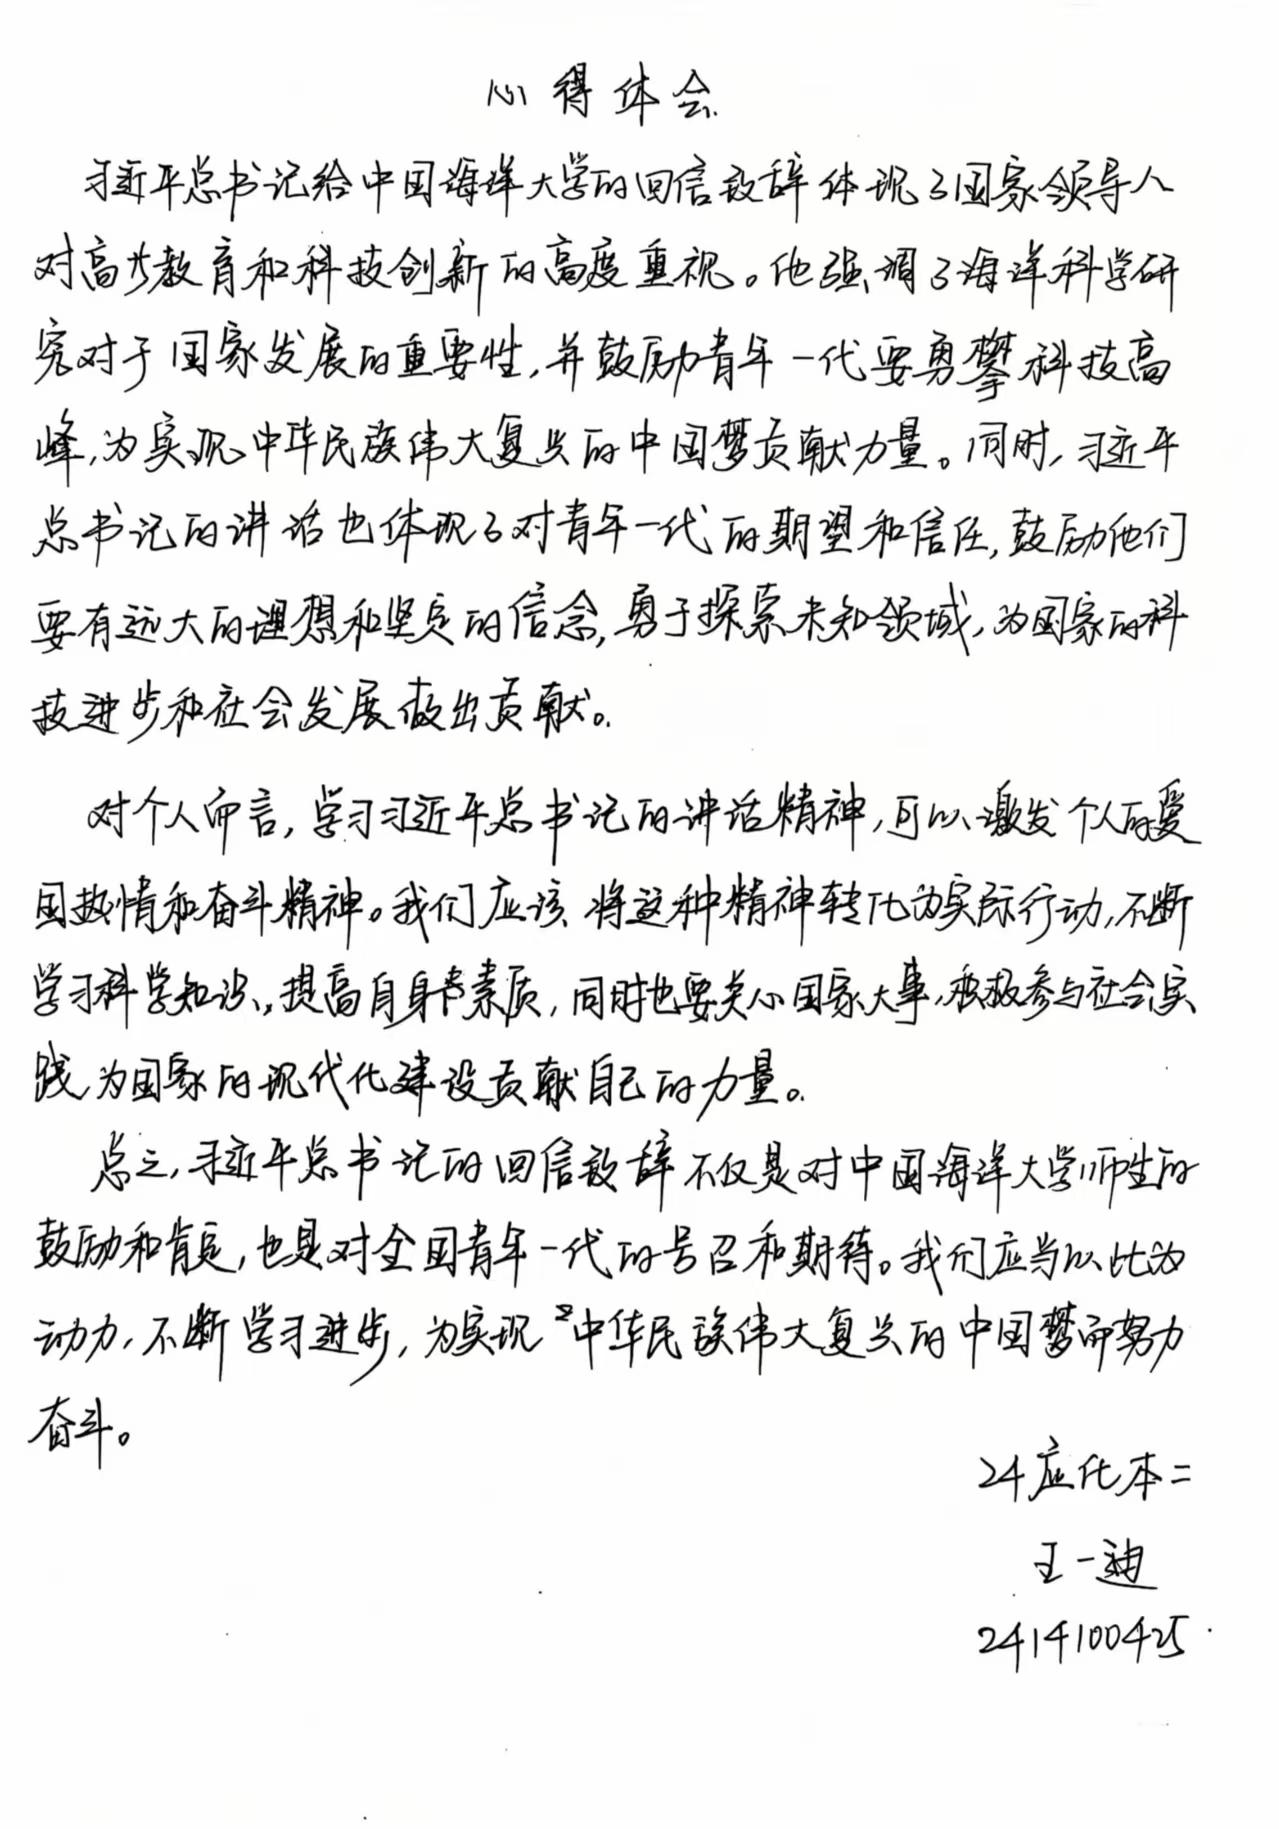 心得体会
习近平总书记给中国海洋大学的回信致辞体现了国家领导人
对高步教育和科技创新的高度重视。他强调了海洋科学研
究对于国家发展的重要性,并鼓励青年一代要勇攀科技高
峰,为实现中华民族伟大复兴的中国梦贡献力量。同时,习近平
总书记的讲话也体现了对青年一代的期望和信任,鼓励他们
要有远大的理想和坚定的信念,勇于探索未知领域,为国家的科
技进步和社会发展做出贡献。
对个人而言,学习习近平总书记的讲话精神,可以激发个人的爱
国热情和奋斗精神。我们应该将这种精神转化为实际行动,不断
学习科学知识,提高自身素质,同时也要关心国家大事,积极参与社会实
践为国家的现代化建设贡献自己的力量。
总之,习近平总书记的回信致辞不仅是对中国海洋大学师生的
鼓励和肯定,也是对全国青年一代的号召和期待。我们应当以此为
动力,不断学习进步,为实现中华民族伟大复兴的中国梦而努力
奋斗。
24应化本二
王一迪
2414100425